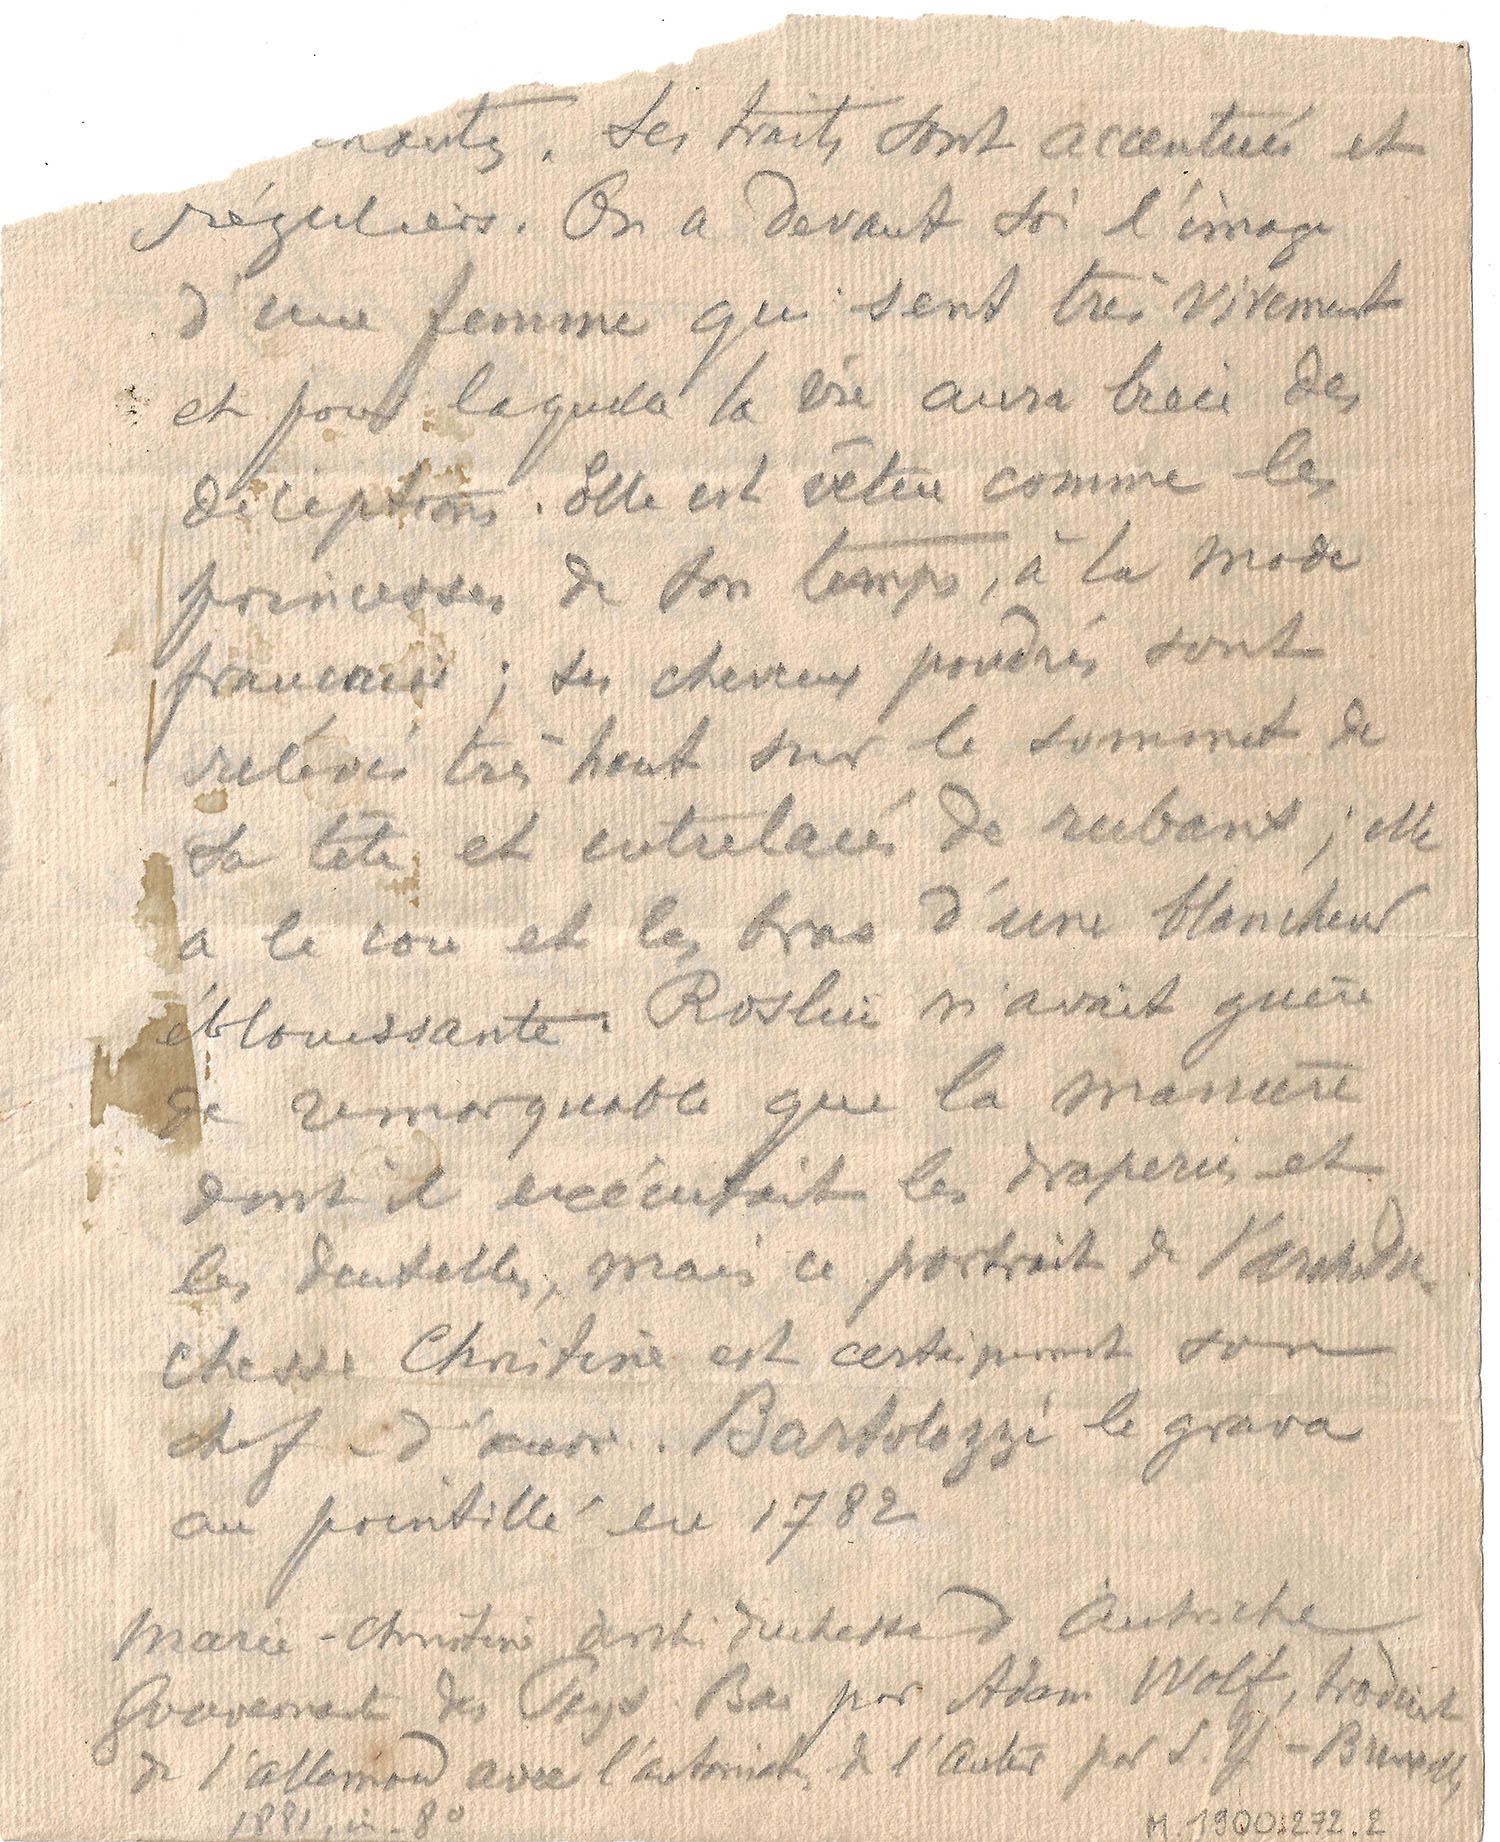 Ses traits sont accentués et
réguliers. On a devant soi l'image
d'une femme qui sent très vivement
et pour laquelle la vie aura bien des
déceptions. Elle est vêtue comme les
princesses de son temps, à la mode
francaise ; ses cheveux poudrés sont
relévés très haut sur le sommet de
sa tête et entrelacés de rubans ; elle
a le cou et les bras d'une blancheur
éblouissante. Roslin n'avait guère
de remarquable que la manière
dont il exécutait les draperies et
les dentelles, mais ce portrait de l'archidu-
chesse Christine est certainement son
chef-d'œuvre. Bartolozzi le grava
au pointillé en 1782
Marie-Christine archiduchesse d'Autriche
Gouvernante des Pays Bas par Adam Wolf, traduit
de l'allemand avec l'autorisat. de l'auteur par L. Y. - Bruxelles,
1881, in-8°
M.1900.272.2